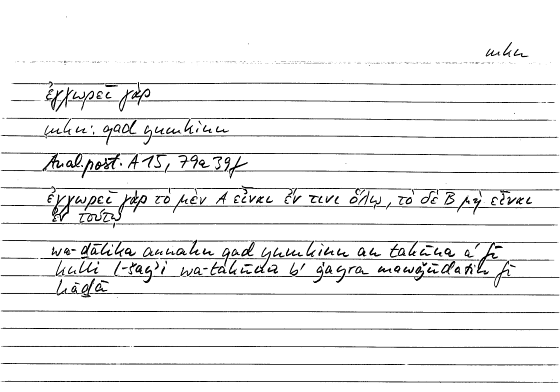 mkn
ἐγχωρεῖ γάρ
mkn: qad yumkinu
Anal.post. A 15, 79a39f
ἐγχωρεῖ γὰρ τὸ μὲν A εἶναι ἔν τινι ὅλῳ, τὸ δὲ B μὴ εἶναι
ἐν τούτῳ
wa-ḏālika annahu qad yumkinu an takūna a' fī
kulli l-šayʾi wa-takūna b' ġayra mawǧūdatin fī
hāḏā